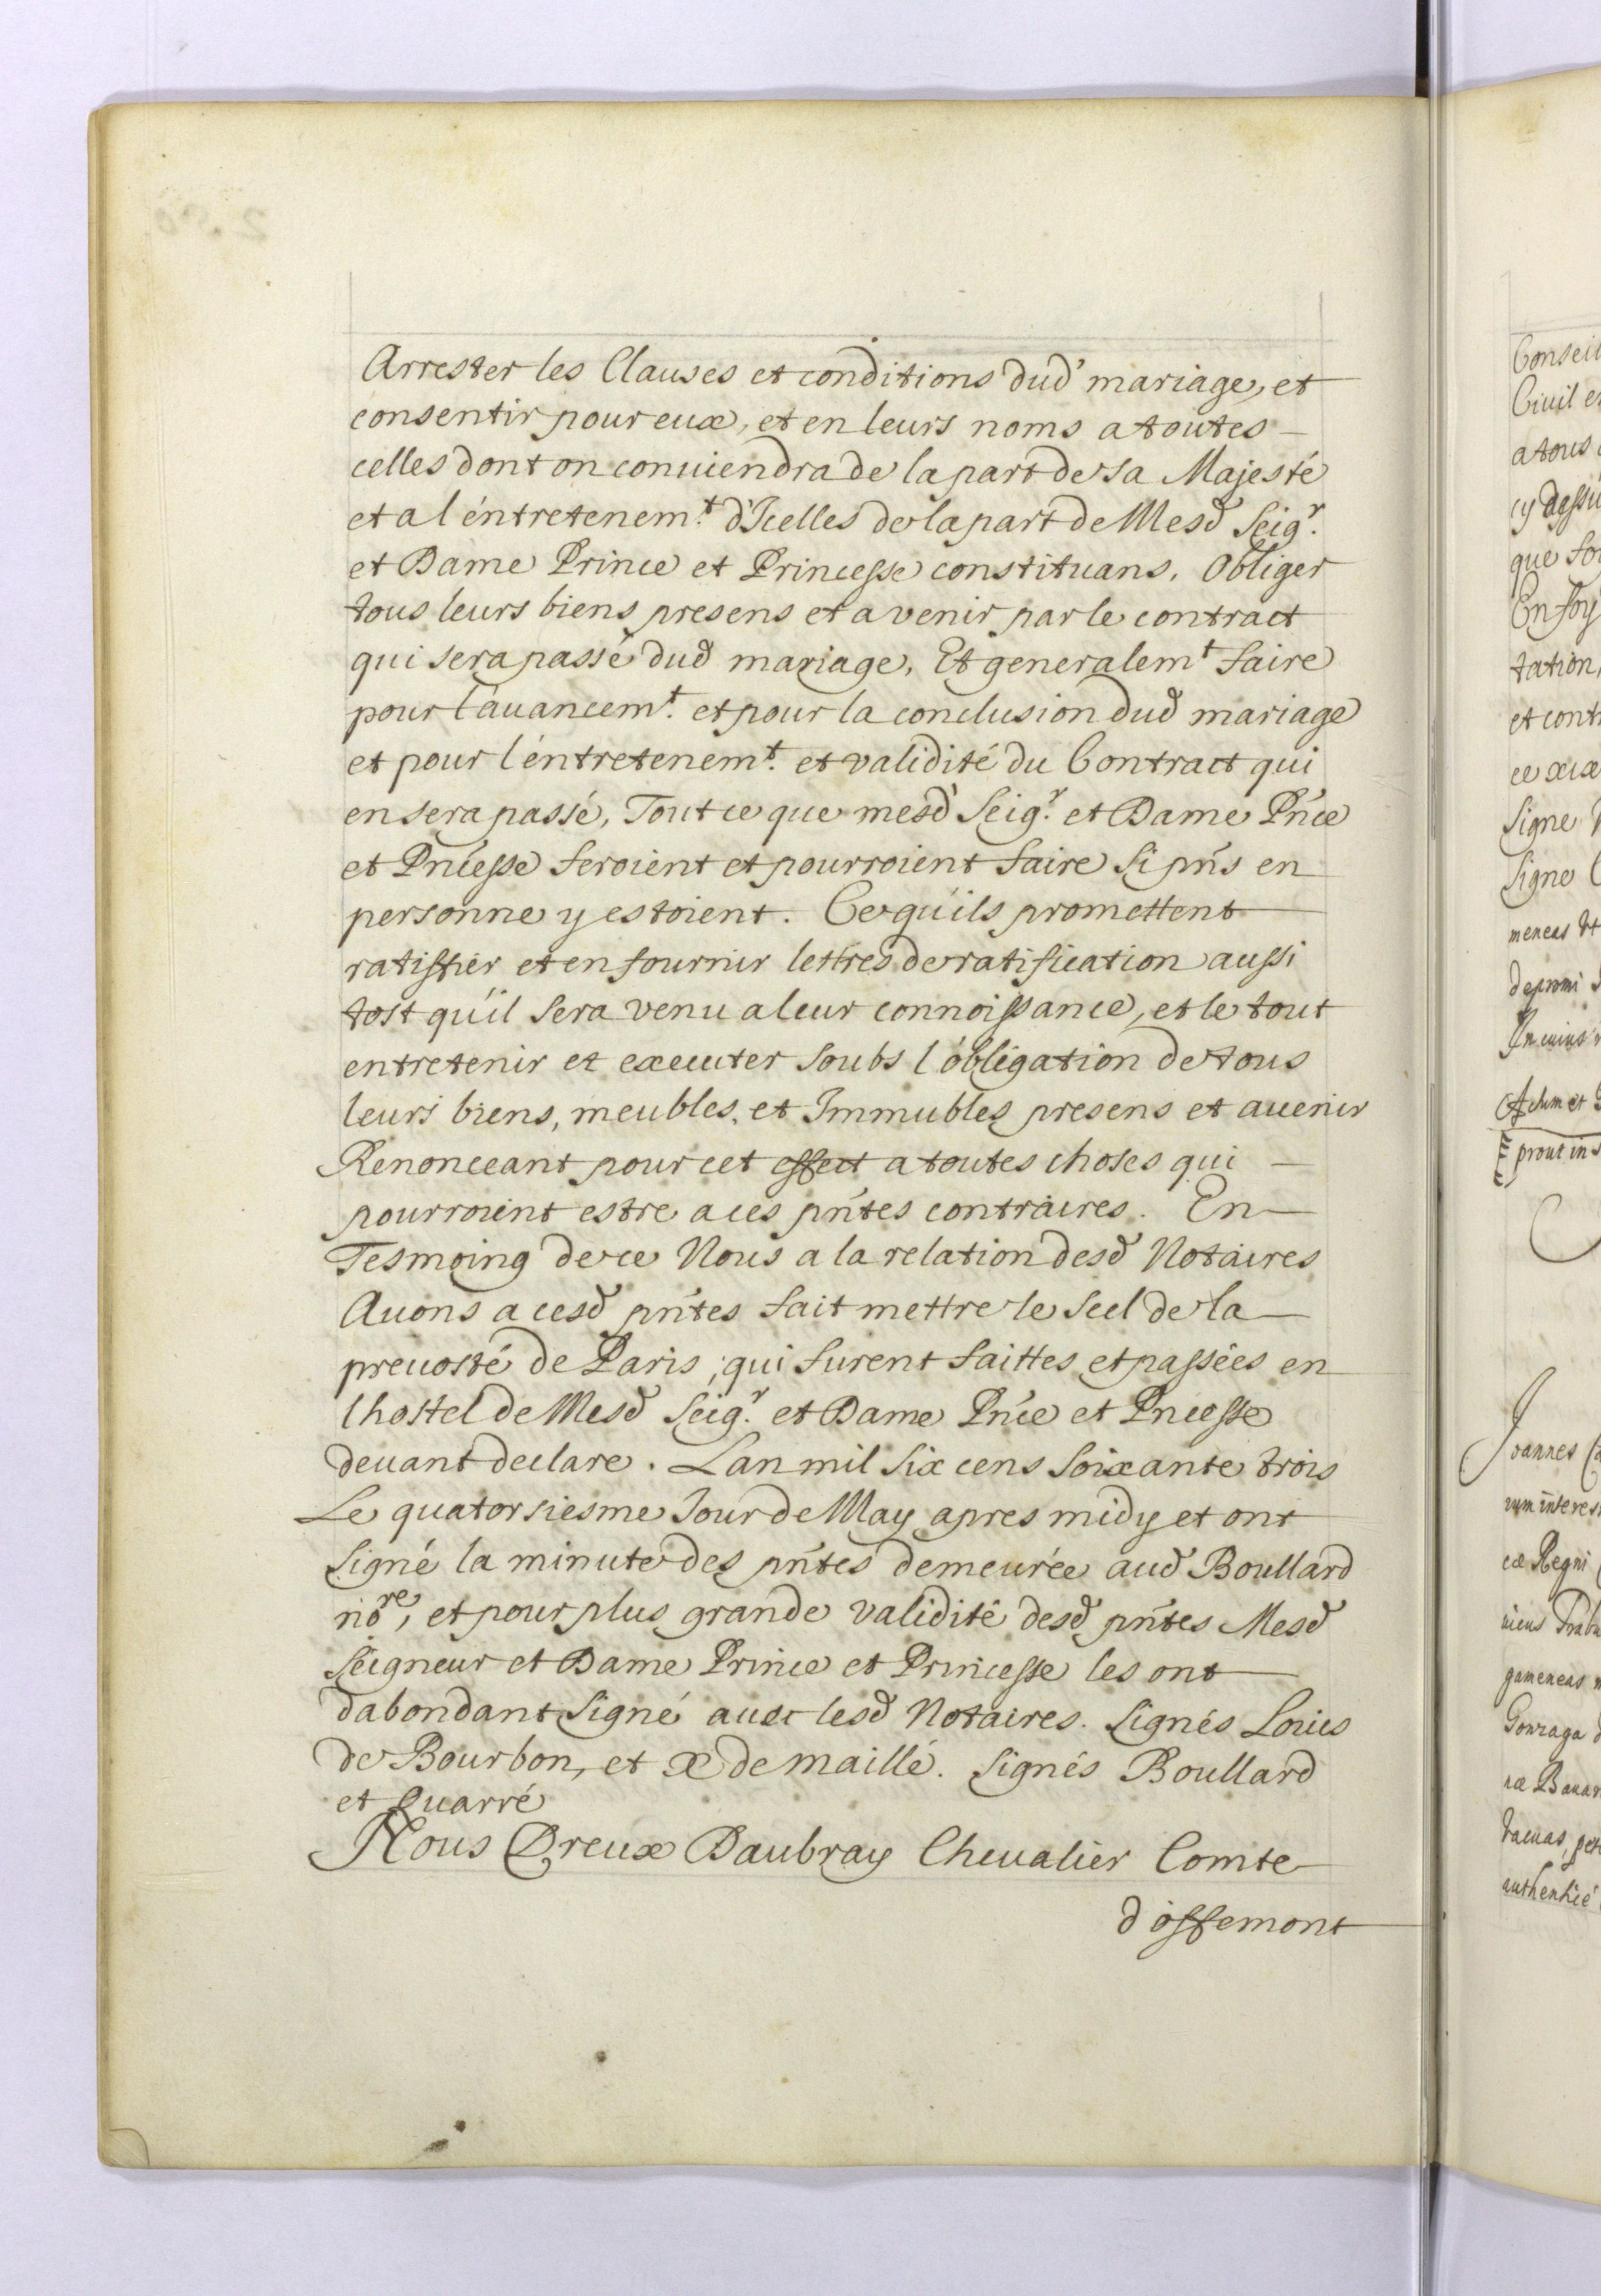 Arrester les Clauses et conditions dud' mariage, et
consentir pour eux, et en leurs noms a toutes –
celles dont on conuiendra de la part de sa Majesté
et a l'éntretenem.t d'Icelles de la part de Mesd Seig.r
et Dame Prince et Princesse constituans. Obliger
tous leurs biens presens et a venir par le contract
qui sera passé dud mariage, Et generalem.t faire
pour l'áuancem.t et pour la conclusion dud mariage
et pour l'éntretenem.t et validité du Contract qui
en sera passé, Tout ce que mesd' Seig.r et Dame Pñce
et Pñcesse feroient et pourroient faire si pñs en
personne y estoient. Ce qu'ils promettent
ratiffier et en fournir lettres de ratification aussi
tost qu'il sera venu a leur connoissance, et le tout
entretenir et executer soubs l'obligation de tous
leurs biens, meubles, et Immubles presens et auenir
Renonceant pour cet effect a toutes choses qui –
pourroient estre a ces pñtes contraires. En –
Tesmoing de ce Nous a la relation desd Notaires
Auons a cesd pñtes fait mettre le scel de la –
preuosté de Paris, qui furent faittes et passées en
lhostel de Mesd Seig.r et Dame Pñce et Pñcesse
deuant declare. Lan mil six cens soixante trois
Le quatorsiesme Jour de May apres midy et ont
signé la minute des pñtes demeurée aud Boullard
no.re, et pour plus grande validité desd pñtes Mesd
Seigneur et Dame Prince et Princesse les ont –
dabondant signé auec lesd Notaires. Signés Louis
de Bourbon, et C de maillé. Signés Boullard
et Quarré
Nous Dreux Daubray Cheualier Comte
d'offemont
Conseil
Ciuil e
a tous
cy dessu
que fo
En foy
tation,
et cont
Signe
Signe
meneas
In cuius
Actum et
prout in
Joannes
rum interes
Regni
gameneas
Gonzaga